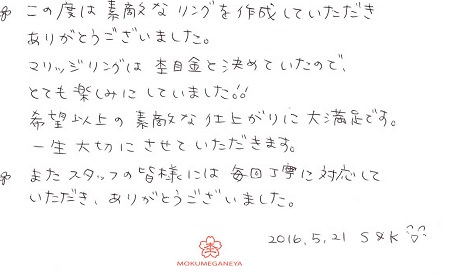 この度は素敵なリングを作成していただき
ありがとうございました。
マリッジリングは杢目金と決めていたので、
とても楽しみにしていました!!
希望以上の素敵な仕上がりに大満足です。
一生大切にさせていただきます。
またスタッフの皆様には毎回丁寧に対応して
いただき、ありがとうございました。
2016.5.21 S&K
MOKUMEGANEYA